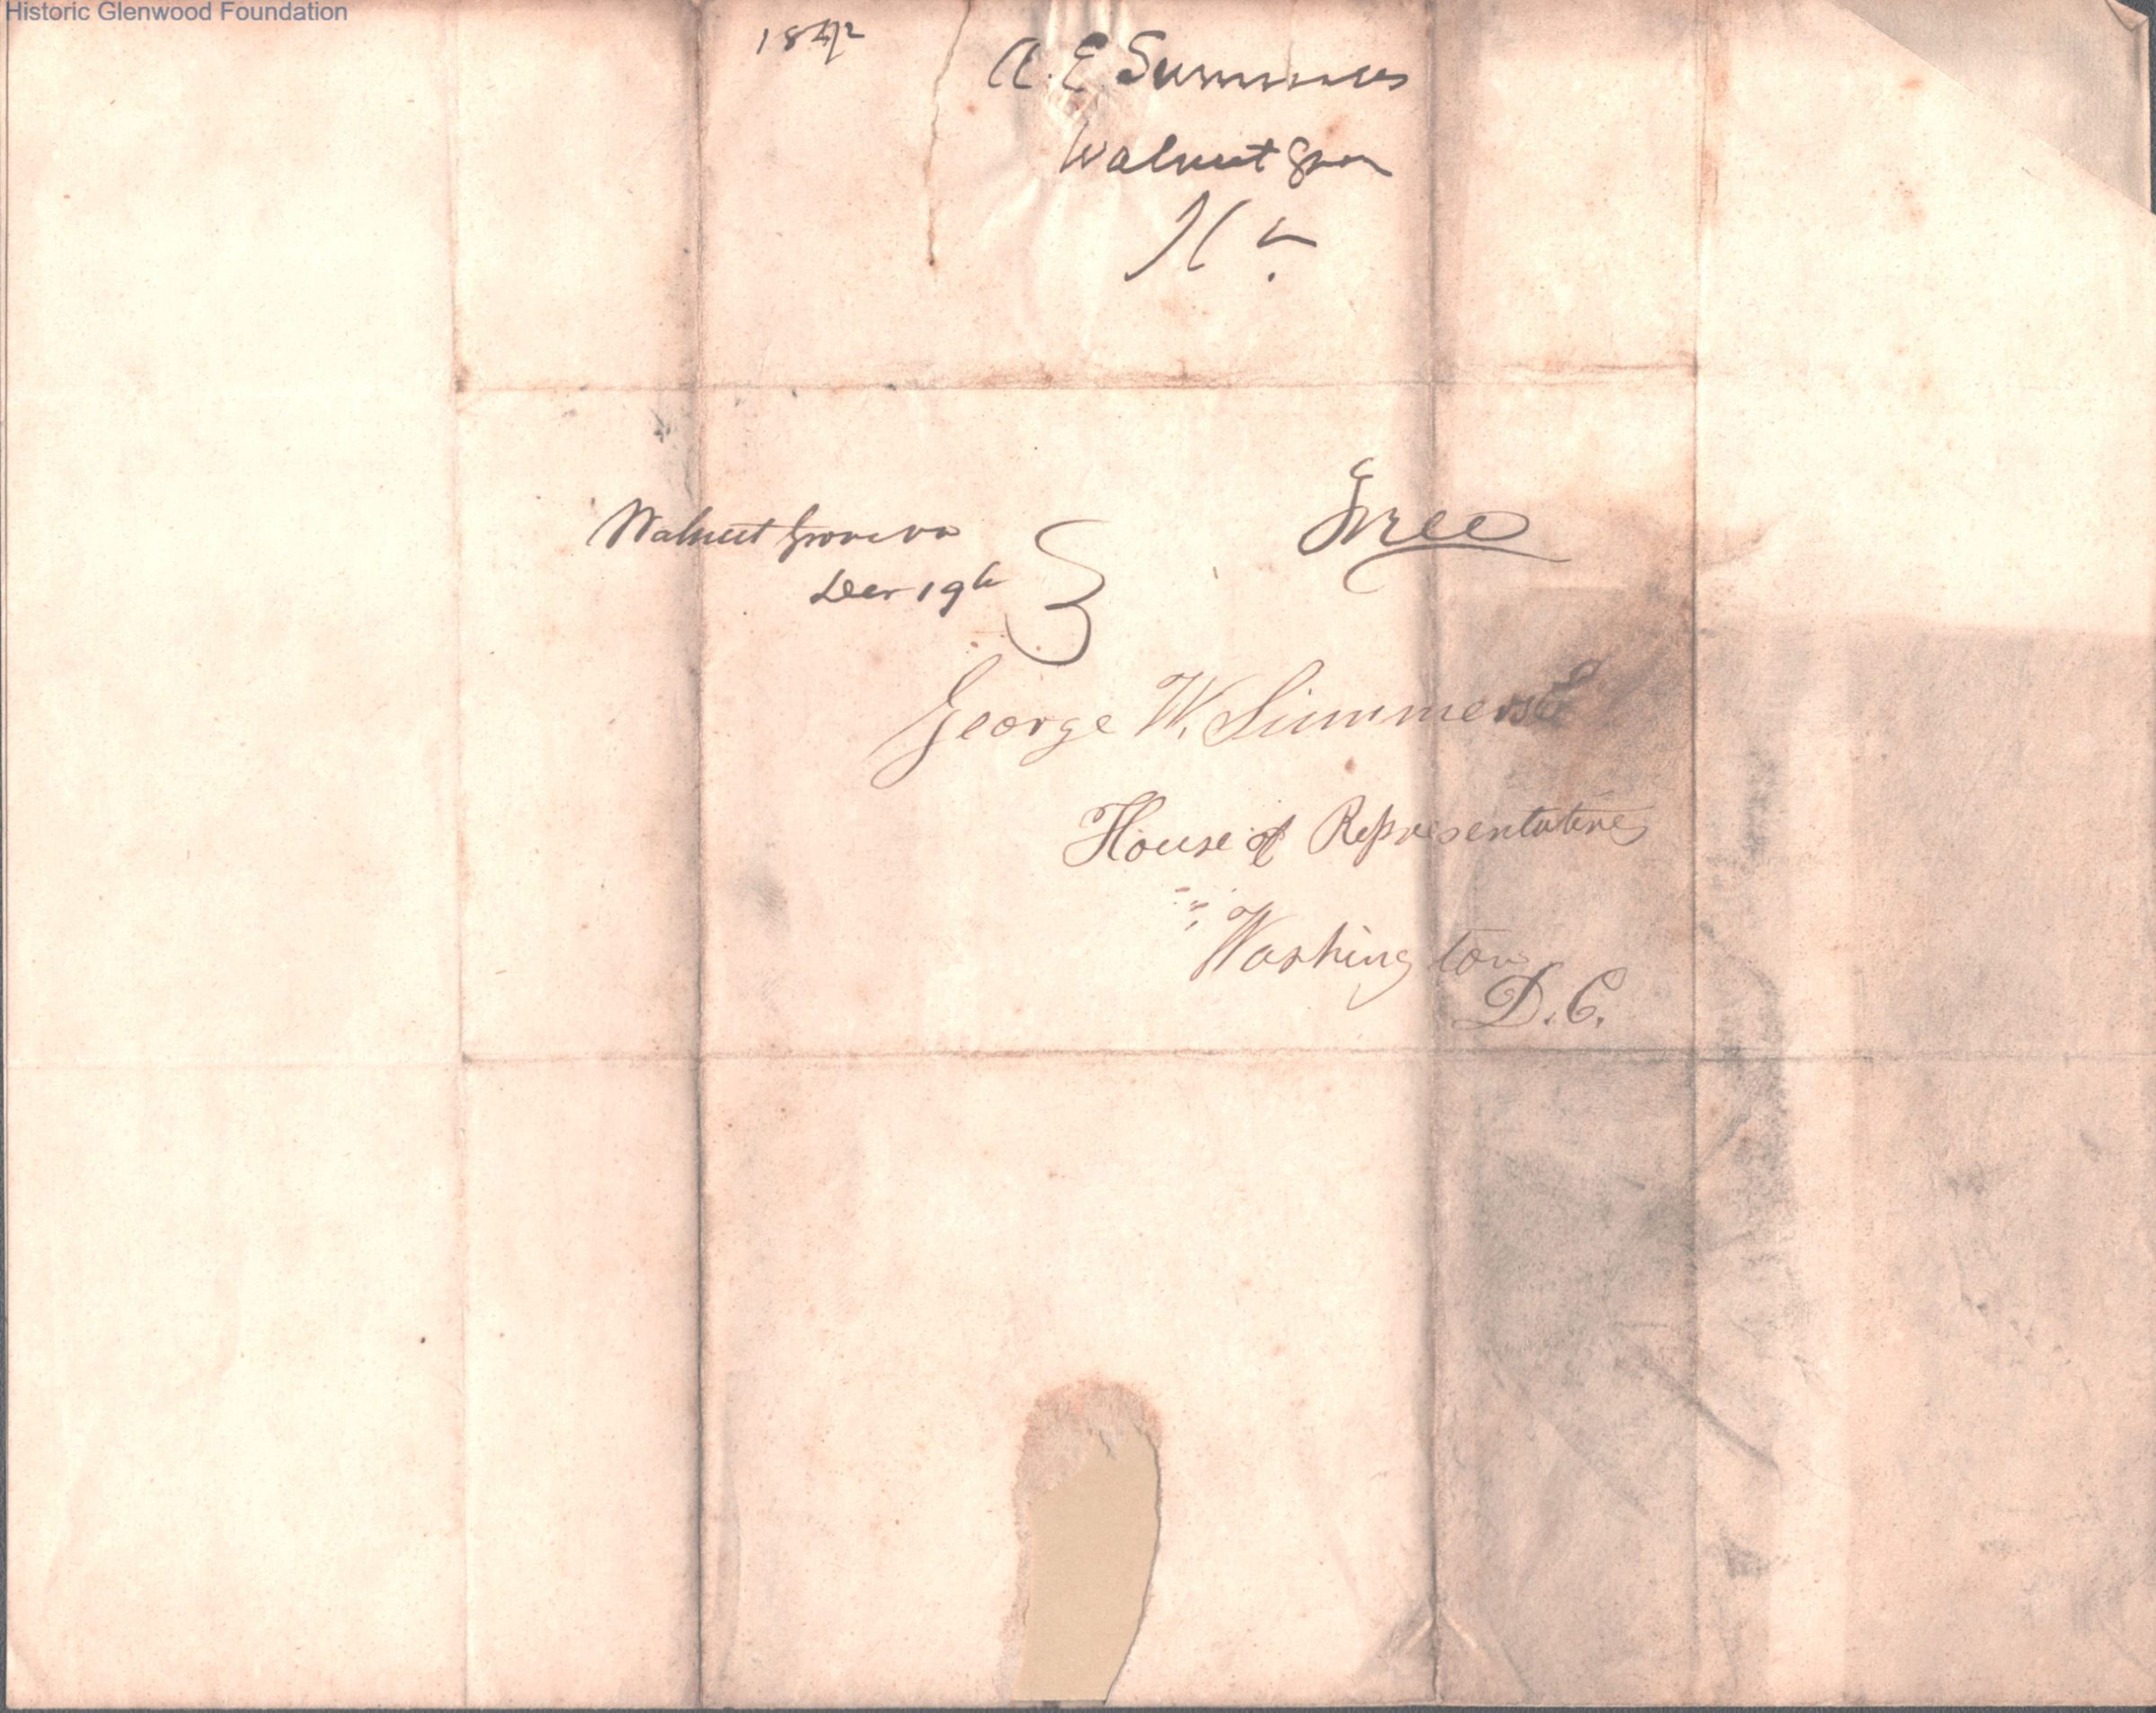 Historic Glenwood Foundation
1842
A. E Summers
Walnut Grove
Walnut Grove va
Free
Decr 19th
George W. Summers
House of Representatives
Washington
D.C.